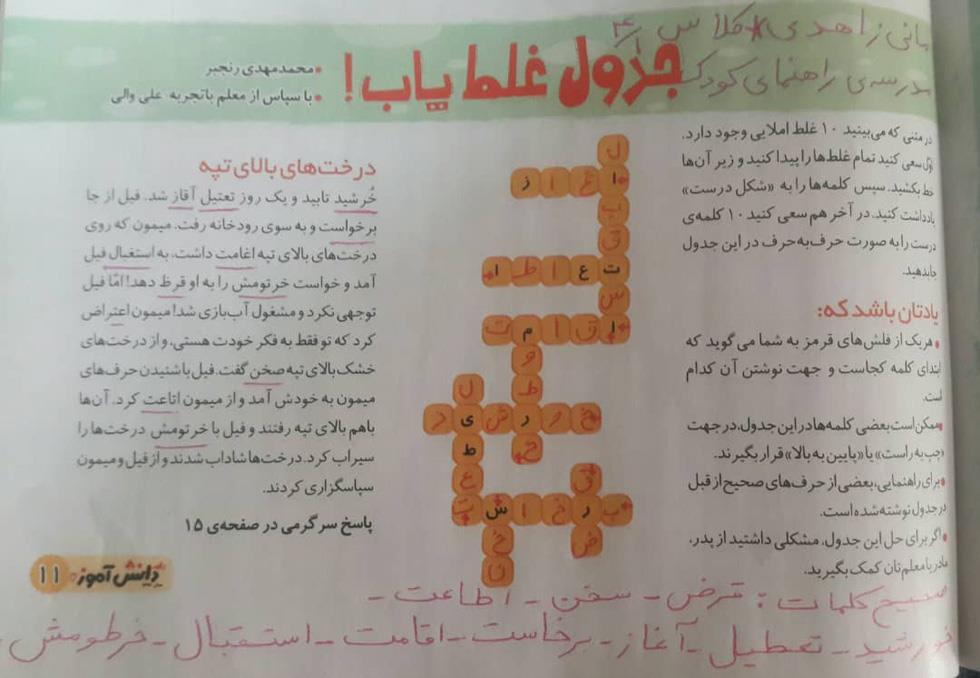 مانی زاهدی کلاس
مدرسه‌ی راهنمای کودک
جدول غلط یاب!
• محمدمهدی رنجبر
• با سپاس از معلم باتجربه: علی والی
در متنی که می‌بینید ۱۰ غلط املایی وجود دارد.
اوّل سعی کنید تمام غلط‌ها را پیدا کنید و زیر آن‌ها
خط بکشید. سپس کلمه‌ها را به «شکل درست»
یادداشت کنید. در آخر هم سعی کنید ۱۰ کلمه‌ی
درست را به صورت حرف‌به‌حرف در این جدول
جا بدهید.
یادتان باشد که:
• هر یک از فلش‌های قرمز به شما می‌گوید که
ابتدای کلمه کجاست و جهت نوشتن آن کدام
است.
• ممکن است بعضی کلمه‌ها در این جدول، در جهت
«چپ به راست» یا «پایین به بالا» قرار بگیرند.
• برای راهنمایی، بعضی از حرف‌های صحیح از قبل
در جدول نوشته شده است.
• اگر برای حل این جدول، مشکلی داشتید از پدر،
مادر یا معلم‌تان کمک بگیرید.
ل
ا غ ا ز
ب
ق
ت ع ط ا
س
ا ق ا م ت
و
ل ط
خ ر ش ی د
ط ح
ع ق
ب ر خ ا س ت
خ ض
ن
درخت‌های بالای تپه
خُرشید تابید و یک روز تعتیل آقاز شد. فیل از جا
برخواست و به سوی رودخانه رفت. میمون که روی
درخت‌های بالای تپه اغامت داشت، به استغبال فیل
آمد و خواست خرتومش را به او قرظ دهد! امّا فیل
توجهی نکرد و مشغول آب‌بازی شد! میمون اعتراض
کرد که تو فقط به فکر خودت هستی، و از درخت‌های
خشک بالای تپه صخن گفت. فیل با شنیدن حرف‌های
میمون به خودش آمد و از میمون اتاعت کرد. آن‌ها
باهم بالای تپه رفتند و فیل با خرتومش درخت‌ها را
سیراب کرد. درخت‌ها شاداب شدند و از فیل و میمون
سپاسگزاری کردند.
پاسخ سرگرمی در صفحه‌ی ۱۵
دانش آموز ۱۱
صحیح کلمات: قرض - سخن - اطاعت -
خورشید - تعطیل - آغاز - برخاست - اقامت - استقبال - خرطومش -